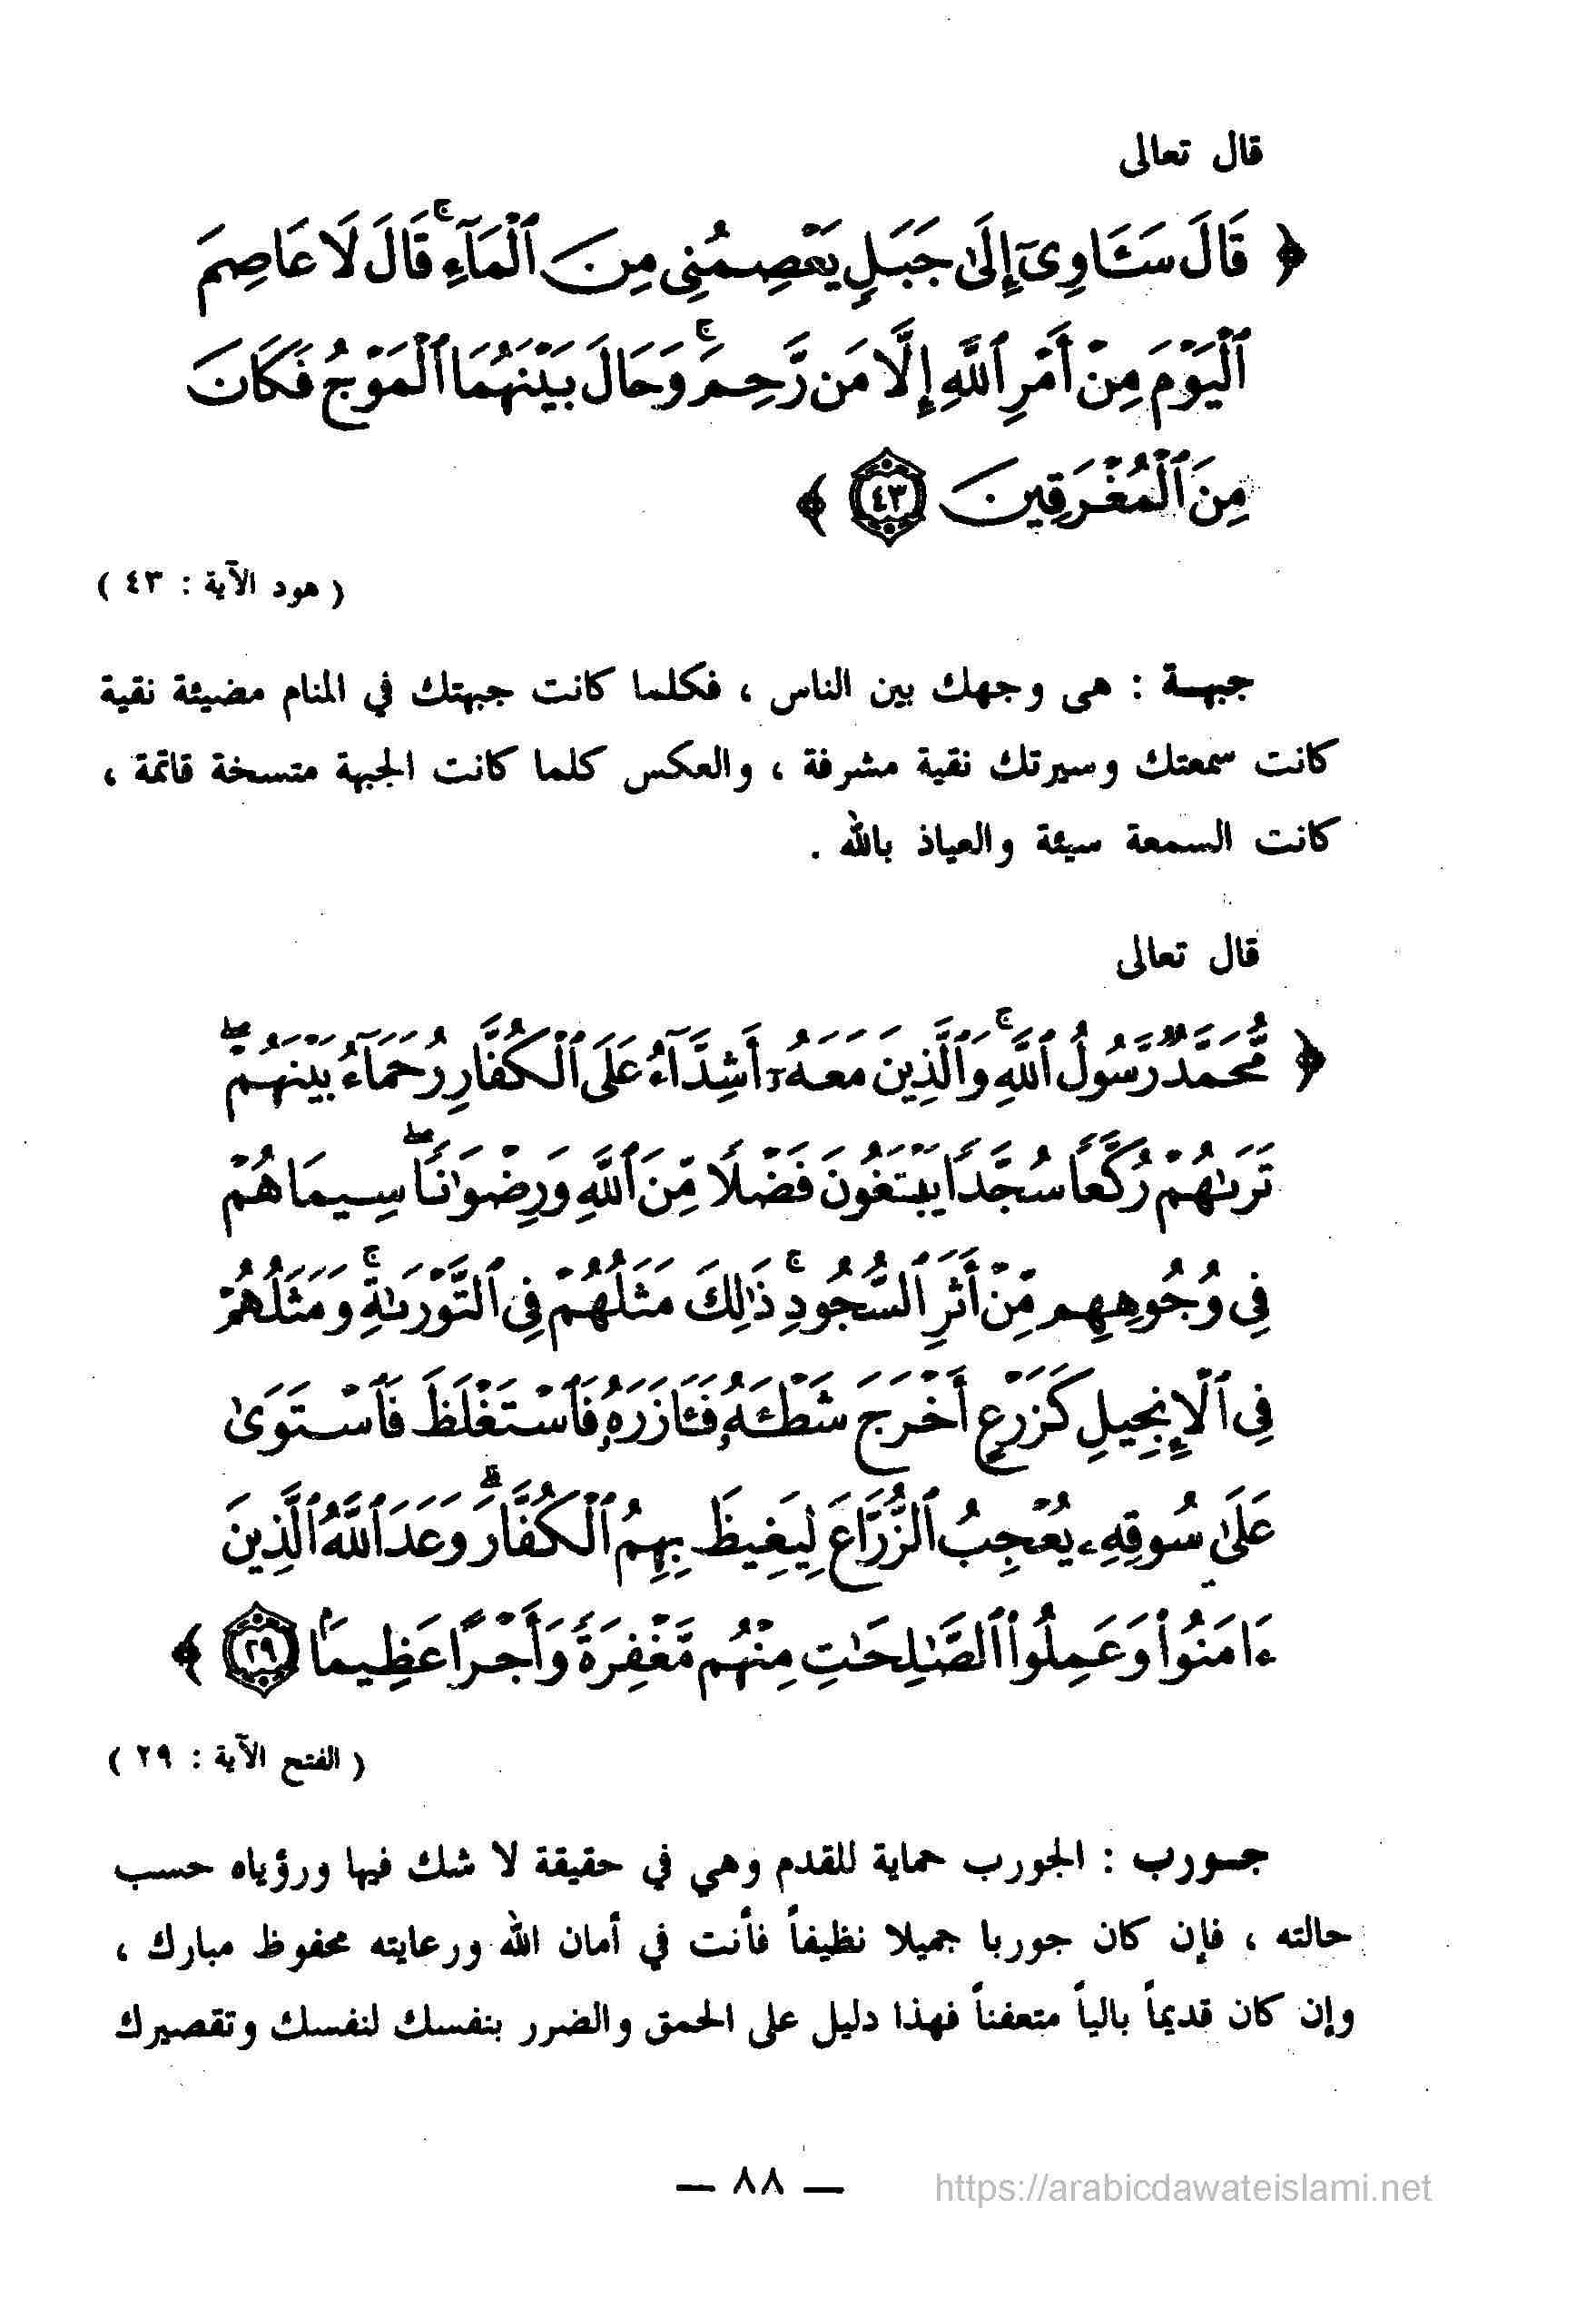 قال تعالى
﴿ قَالَ سَـَٔاوِىٓ إِلَىٰ جَبَلٍ يَعْصِمُنِى مِنَ ٱلْمَآءِ ۚ قَالَ لَا عَاصِمَ
ٱلْيَوْمَ مِنْ أَمْرِ ٱللَّهِ إِلَّا مَن رَّحِمَ ۚ وَحَالَ بَيْنَهُمَا ٱلْمَوْجُ فَكَانَ
مِنَ ٱلْمُغْرَقِينَ ٤٣ ﴾
( هود الآية : ٤٣ )
جبهة : هى وجهك بين الناس ، فكلما كانت جبهتك في المنام مضيئة نقية
كانت سمعتك وسيرتك نقية مشرفة ، والعكس كلما كانت الجبهة متسخة قاتمة ،
كانت السمعة سيئة والعياذ بالله .
قال تعالى
﴿ مُّحَمَّدٌ رَّسُولُ ٱللَّهِ ۚ وَٱلَّذِينَ مَعَهُۥٓ أَشِدَّآءُ عَلَى ٱلْكُفَّارِ رُحَمَآءُ بَيْنَهُمْ ۖ
تَرَىٰهُمْ رُكَّعًا سُجَّدًا يَبْتَغُونَ فَضْلًا مِّنَ ٱللَّهِ وَرِضْوَٰنًا ۖ سِيمَاهُمْ
فِى وُجُوهِهِم مِّنْ أَثَرِ ٱلسُّجُودِ ۚ ذَٰلِكَ مَثَلُهُمْ فِى ٱلتَّوْرَىٰةِ ۚ وَمَثَلُهُمْ
فِى ٱلْإِنجِيلِ كَزَرْعٍ أَخْرَجَ شَطْـَٔهُۥ فَـَٔازَرَهُۥ فَٱسْتَغْلَظَ فَٱسْتَوَىٰ
عَلَىٰ سُوقِهِۦ يُعْجِبُ ٱلزُّرَّاعَ لِيَغِيظَ بِهِمُ ٱلْكُفَّارَ ۗ وَعَدَ ٱللَّهُ ٱلَّذِينَ
ءَامَنُوا۟ وَعَمِلُوا۟ ٱلصَّٰلِحَٰتِ مِنْهُم مَّغْفِرَةً وَأَجْرًا عَظِيمًۢا ٢٩ ﴾
( الفتح الآية : ٢٩ )
جورب : الجورب حماية للقدم وهي في حقيقة لا شك فيها ورؤياه حسب
حالته ، فإن كان جوربا جميلا نظيفاً فأنت في أمان الله ورعايته محفوظ مبارك ،
وإن كان قديماً بالياً متعفناً فهذا دليل على الحمق والضرر بنفسك لنفسك وتقصيرك
— ٨٨ —
https://arabicdawateislami.net